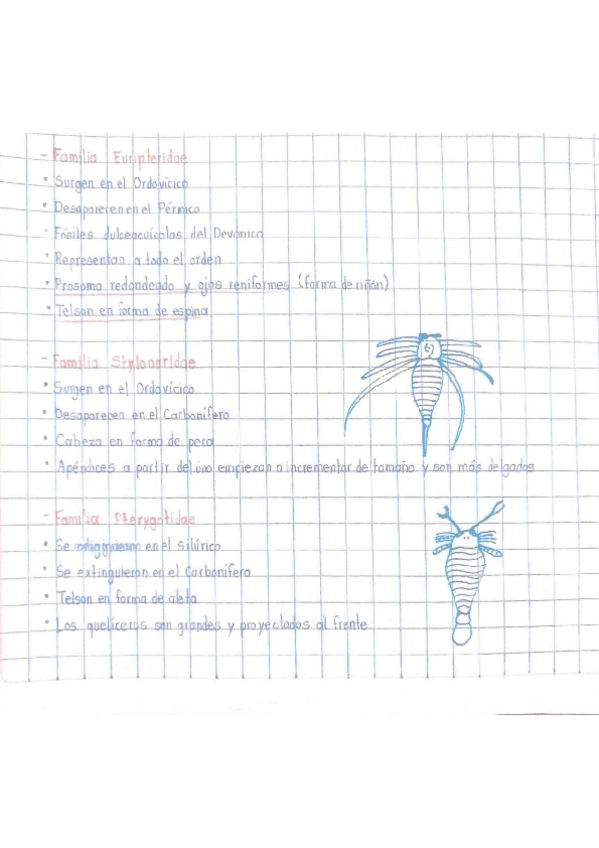 - Familia Euripteridae
• Surgen en el Ordovícico
• Desaparecen en el Pérmico
• Fósiles dulceacuícolas del Devónico
• Representan a todo el orden
• Prosoma redondeado y ojos reniformes (forma de riñón)
• Telson en forma de espina
- Familia Stylonuridae
• Surgen en el Ordovícico
• Desaparecen en el Carbonífero
• Cabeza en forma de pera
• Apéndices a partir del uno empiezan a incrementar de tamaño y son más delgados
- Familia Pterygotidae
• Se en el Silúrico
• Se extinguieron en el Carbonífero
• Telson en forma de aleta
• Los quelíceros son grandes y proyectados al frente